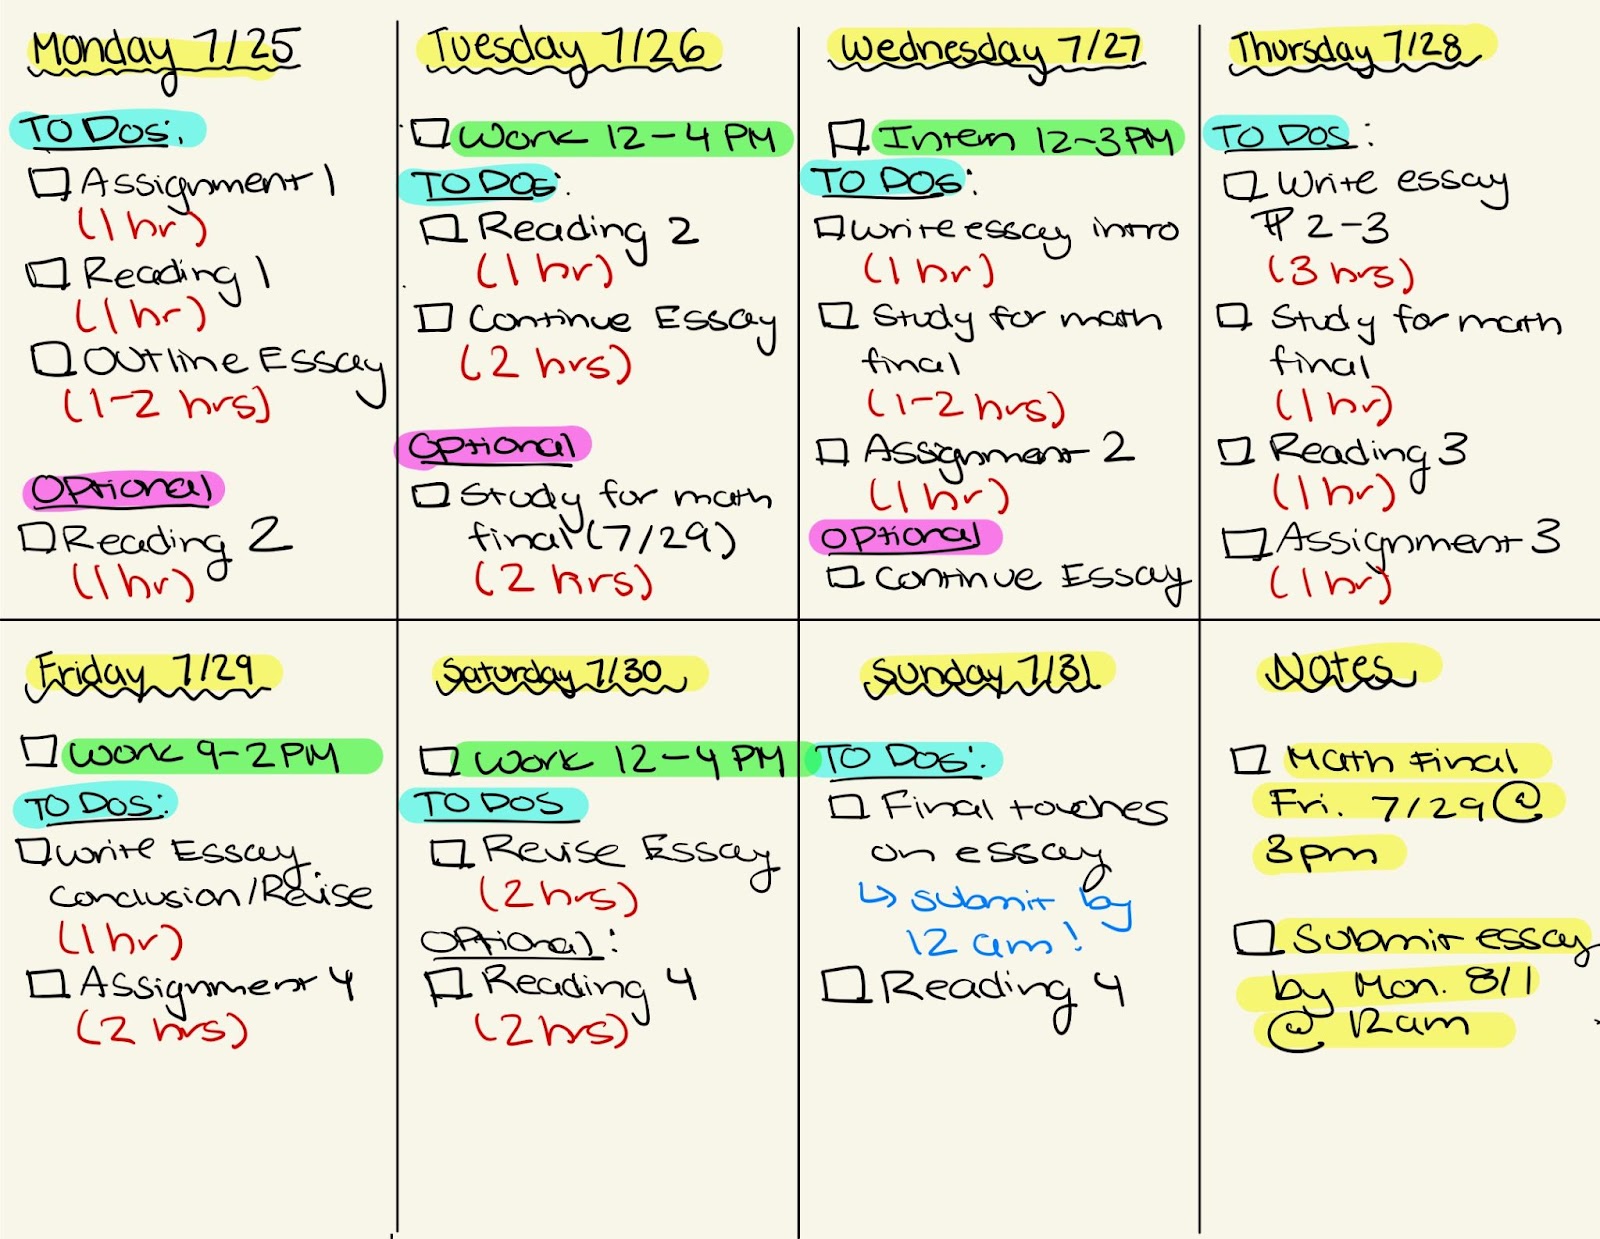 Monday 7/25
TO DOS:
Assignment 1
(1 hr)
Reading 1
(1 hr)
Outline Essay
(1-2 hrs)
Optional
Reading 2
(1 hr)
Tuesday 7/26
Work 12-4 PM
TO DOS:
Reading 2
(1 hr)
Continue Essay
(2 hrs)
Optional
Study for math
final (7/29)
(2 hrs)
Wednesday 7/27
Intern 12-3PM
TO DOS:
Write essay intro
(1 hr)
Study for math
final
(1-2 hrs)
Assignment 2
(1 hr)
Optional
Continue Essay
Thursday 7/28
TO DOS:
Write essay
¶ 2-3
(3 hrs)
Study for math
final
(1 hr)
Reading 3
(1 hr)
Assignment 3
(1 hr)
Friday 7/29
Work 9-2PM
TO DOS:
Write Essay
Conclusion/Revise
(1 hr)
Assignment 4
(2 hrs)
Saturday 7/30
Work 12-4 PM
TO DOS
Revise Essay
(2 hrs)
Optional:
Reading 4
(2 hrs)
Sunday 7/31
TO DOS:
Final touches
on essay
↳ submit by
12 am!
Reading 4
Notes
Math Final
Fri. 7/29 @
3pm
Submit essay
by Mon. 8/1
@ 12am